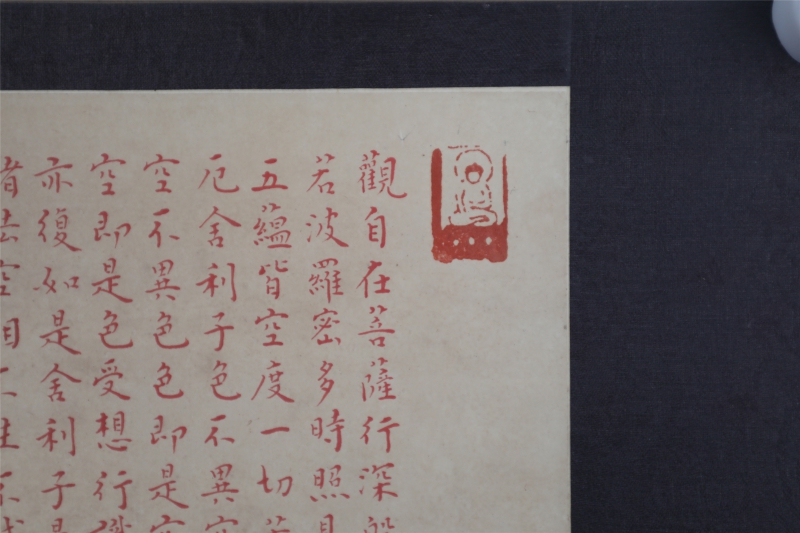 觀自在菩薩行深
若波羅密多時照
五蘊皆空度一切
厄舍利子色不異
空不異色色即是
空即是色受想行
亦復如是舍利子